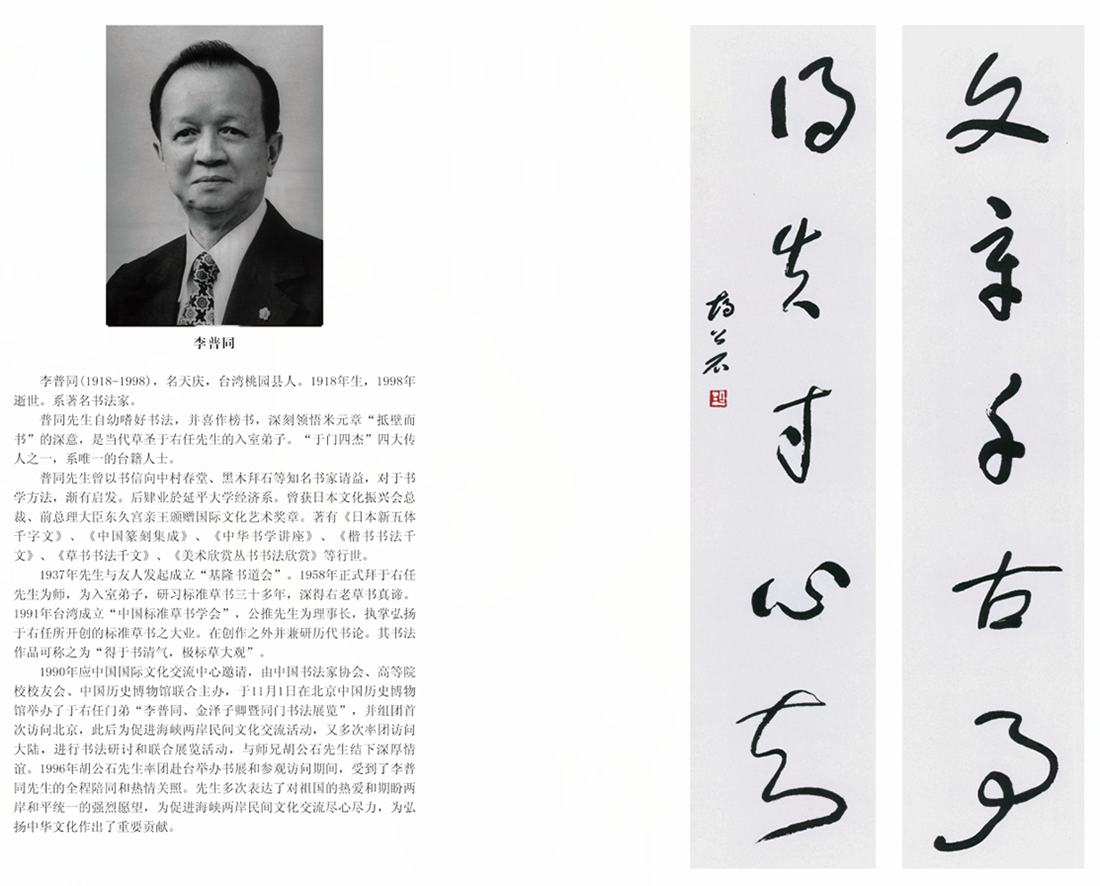 李普同
李普同(1918-1998)，名天庆，台湾桃园县人。1918年生，1998年
逝世。系著名书法家。
普同先生自幼嗜好书法，并喜作榜书，深刻领悟米元章“抵壁而
书”的深意，是当代草圣于右任先生的入室弟子。“于门四杰”四大传
人之一，系唯一的台籍人士。
普同先生曾以书信向中村春堂、黑木拜石等知名书家请益，对于书
学方法，渐有启发。后肄业於延平大学经济系。曾获日本文化振兴会总
裁、前总理大臣东久宫亲王颁赠国际文化艺术奖章。著有《日本新五体
千字文》、《中国篆刻集成》、《中华书学讲座》、《楷书书法千
文》、《草书书法千文》、《美术欣赏丛书书法欣赏》等行世。
1937年先生与友人发起成立“基隆书道会”。1958年正式拜于右任
先生为师，为入室弟子，研习标准草书三十多年，深得右老草书真谛。
1991年台湾成立“中国标准草书学会”，公推先生为理事长，执掌弘扬
于右任所开创的标准草书之大业。在创作之外并兼研历代书论。其书法
作品可称之为“得于书清气，极标草大观”。
1990年应中国国际文化交流中心邀请，由中国书法家协会、高等院
校校友会、中国历史博物馆联合主办，于11月1日在北京中国历史博物
馆举办了于右任门弟“李普同、金泽子卿暨同门书法展览”，并组团首
次访问北京，此后为促进海峡两岸民间文化交流活动，又多次率团访问
大陆，进行书法研讨和联合展览活动，与师兄胡公石先生结下深厚情
谊。1996年胡公石先生率团赴台举办书展和参观访问期间，受到了李普
同先生的全程陪同和热情关照。先生多次表达了对祖国的热爱和期盼两
岸和平统一的强烈愿望，为促进海峡两岸民间文化交流尽心尽力，为弘
扬中华文化作出了重要贡献。
文章千古事
得失寸心知
胡公石